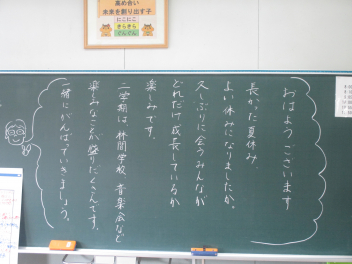 高め合い
未来を創り出す子
にこにこ
きらきら
ぐんぐん
おはようございます
長かった夏休み、
よい休みになりましたか。
久しぶりに会うみんなが
どれだけ成長しているか
楽しみです。
二学期は、林間学校、音楽会など
楽しみなことが盛りだくさんです。
一緒にがんばっていきましょう。